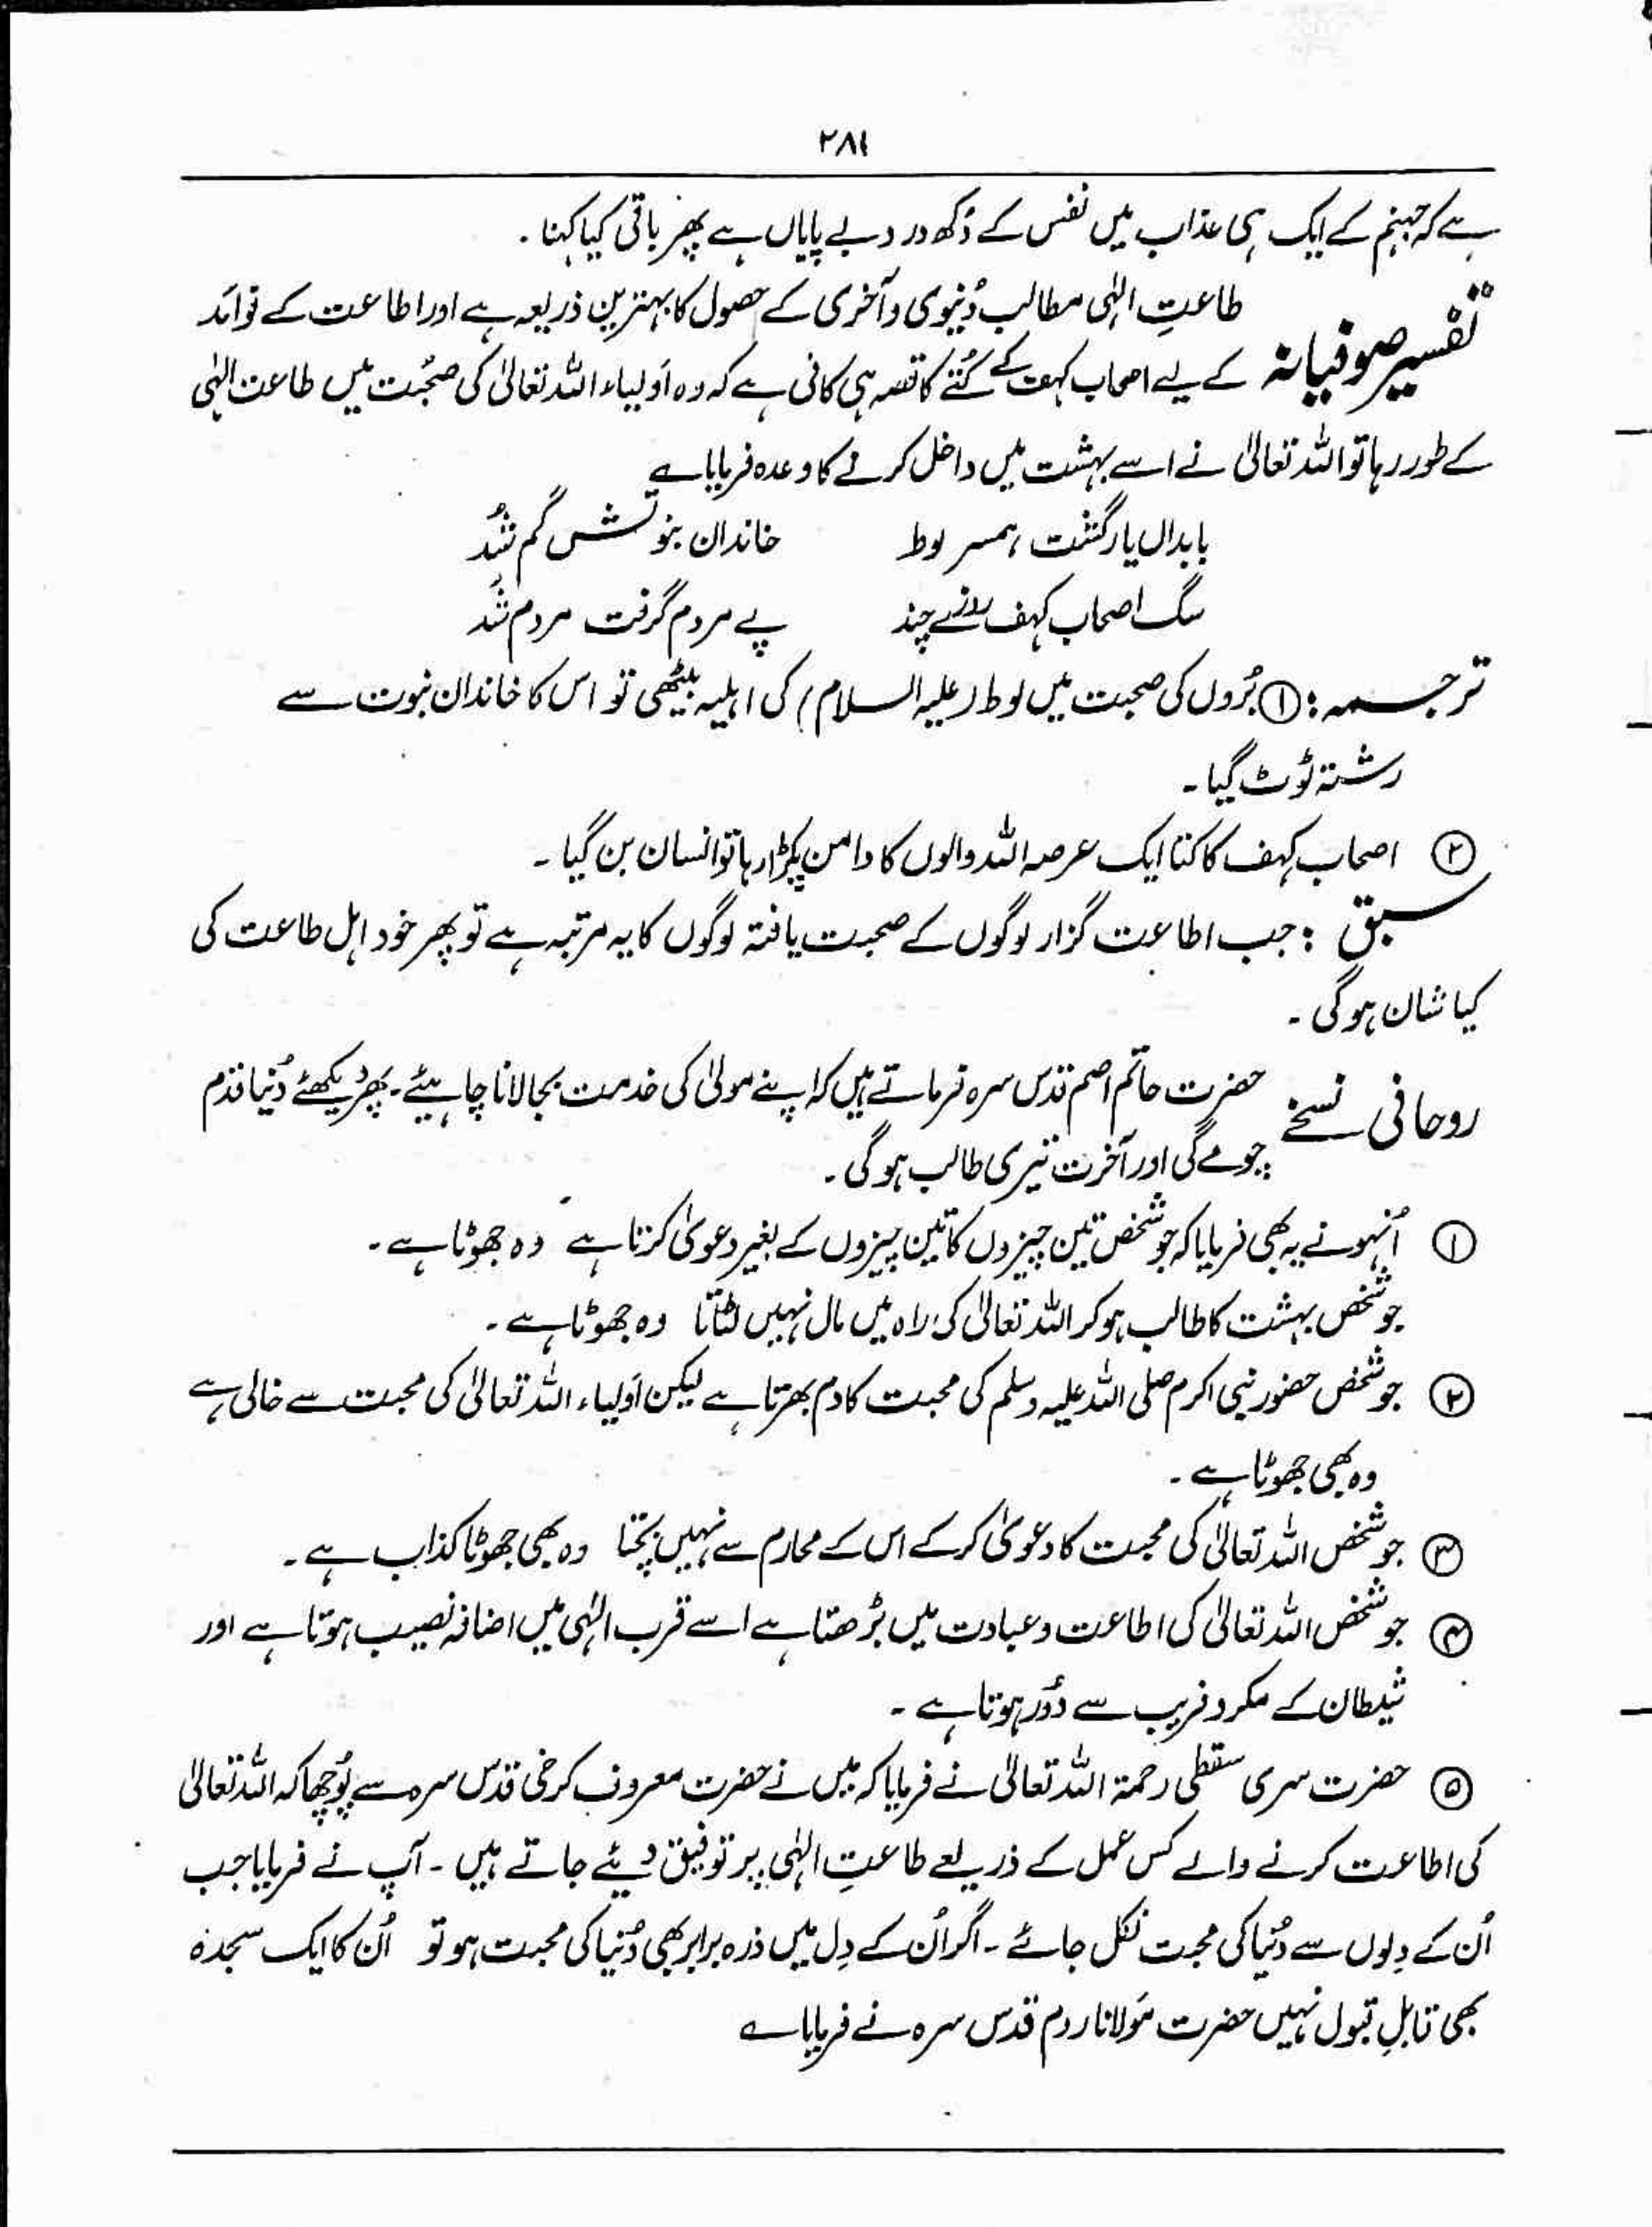 ۲۸۱
ہے کہ جہنم کے ایک ہی عذاب میں نفس کے دُکھ درد بے پایاں ہے پھر باقی کیا کہنا ۔
تفسیر صوفیانہ
طاعتِ الہٰی مطالب دُنیوی و آخری کے حصول کا بہترین ذریعہ ہے اور اطاعت کے فوائد
کے لیے اصحاب کہف کے کُتے کا قصہ ہی کافی ہے کہ وہ اَولیاء اللہ تعالیٰ کی صحُبت میں طاعت الہٰی
کے طور رہا تو اللہ تعالیٰ نے اسے بہشت میں داخل کرنے کا وعدہ فرمایا ؎
بابداں یار گشت ہمسر لوط خاندان بنوتش گم شُد
سگ اصحاب کہف روزے چند پے مردم گرفت مردم شُد
ترجمہ : ① بُروں کی صحبت میں لوط (علیہ السلام) کی اہلیہ بیٹھی تو اس کا خاندان نبوت سے
رشتہ ٹوٹ گیا ۔
② اصحاب کہف کا کتا ایک عرصہ اللہ والوں کا دامن پکڑا رہا تو انسان بن گیا ۔
سبق : جب اطاعت گزار لوگوں کے صحبت یافتہ لوگوں کا یہ مرتبہ ہے تو پھر خود اہل طاعت کی
کیا شان ہوگی ۔
روحانی نسخے
حضرت حاتم اصم قدس سرہ فرماتے ہیں کہ اپنے مولیٰ کی خدمت بجا لانا چاہیئے ۔ پھر دیکھئے دُنیا قدم
چومے گی اور آخرت تیری طالب ہوگی ۔
① اُنہو نے یہ بھی فرمایا کہ جو شخص تین چیزوں کا تین چیزوں کے بغیر دعویٰ کرتا ہے وہ جھوٹا ہے ۔
جو شخص بہشت کا طالب ہو کر اللہ تعالیٰ کی راہ میں مال نہیں لٹاتا وہ جھوٹا ہے ۔
② جو شخص حضور نبی اکرم صلی اللہ علیہ وسلم کی محبت کا دم بھرتا ہے لیکن اَولیاء اللہ تعالیٰ کی محبت سے خالی ہے
وہ بھی جھوٹا ہے ۔
③ جو شخص اللہ تعالیٰ کی محبت کا دعویٰ کر کے اس کے محارم سے نہیں بچتا وہ بھی جھوٹا کذاب ہے ۔
④ جو شخص اللہ تعالیٰ کی اطاعت و عبادت میں بڑھتا ہے اسے قرب الہٰی میں اضافہ نصیب ہوتا ہے اور
شیطان کے مکر و فریب سے دُور ہوتا ہے ۔
⑤ حضرت سری سقطی رحمۃ اللہ تعالیٰ نے فرمایا کہ میں نے حضرت معروف کرخی قدس سرہ سے پوُچھا کہ اللہ تعالیٰ
کی اطاعت کرنے والے کس عمل کے ذریعے طاعتِ الہٰی پر توفیق دیئے جاتے ہیں ۔ آپ نے فرمایا جب
اُن کے دِلوں سے دُنیا کی محبت نکل جائے ۔ اگر اُن کے دِل میں ذرہ برابر بھی دُنیا کی محبت ہو تو اُن کا ایک سجدہ
بھی قابلِ قبول نہیں حضرت مَولانا روم قدس سرہ نے فرمایا ؎